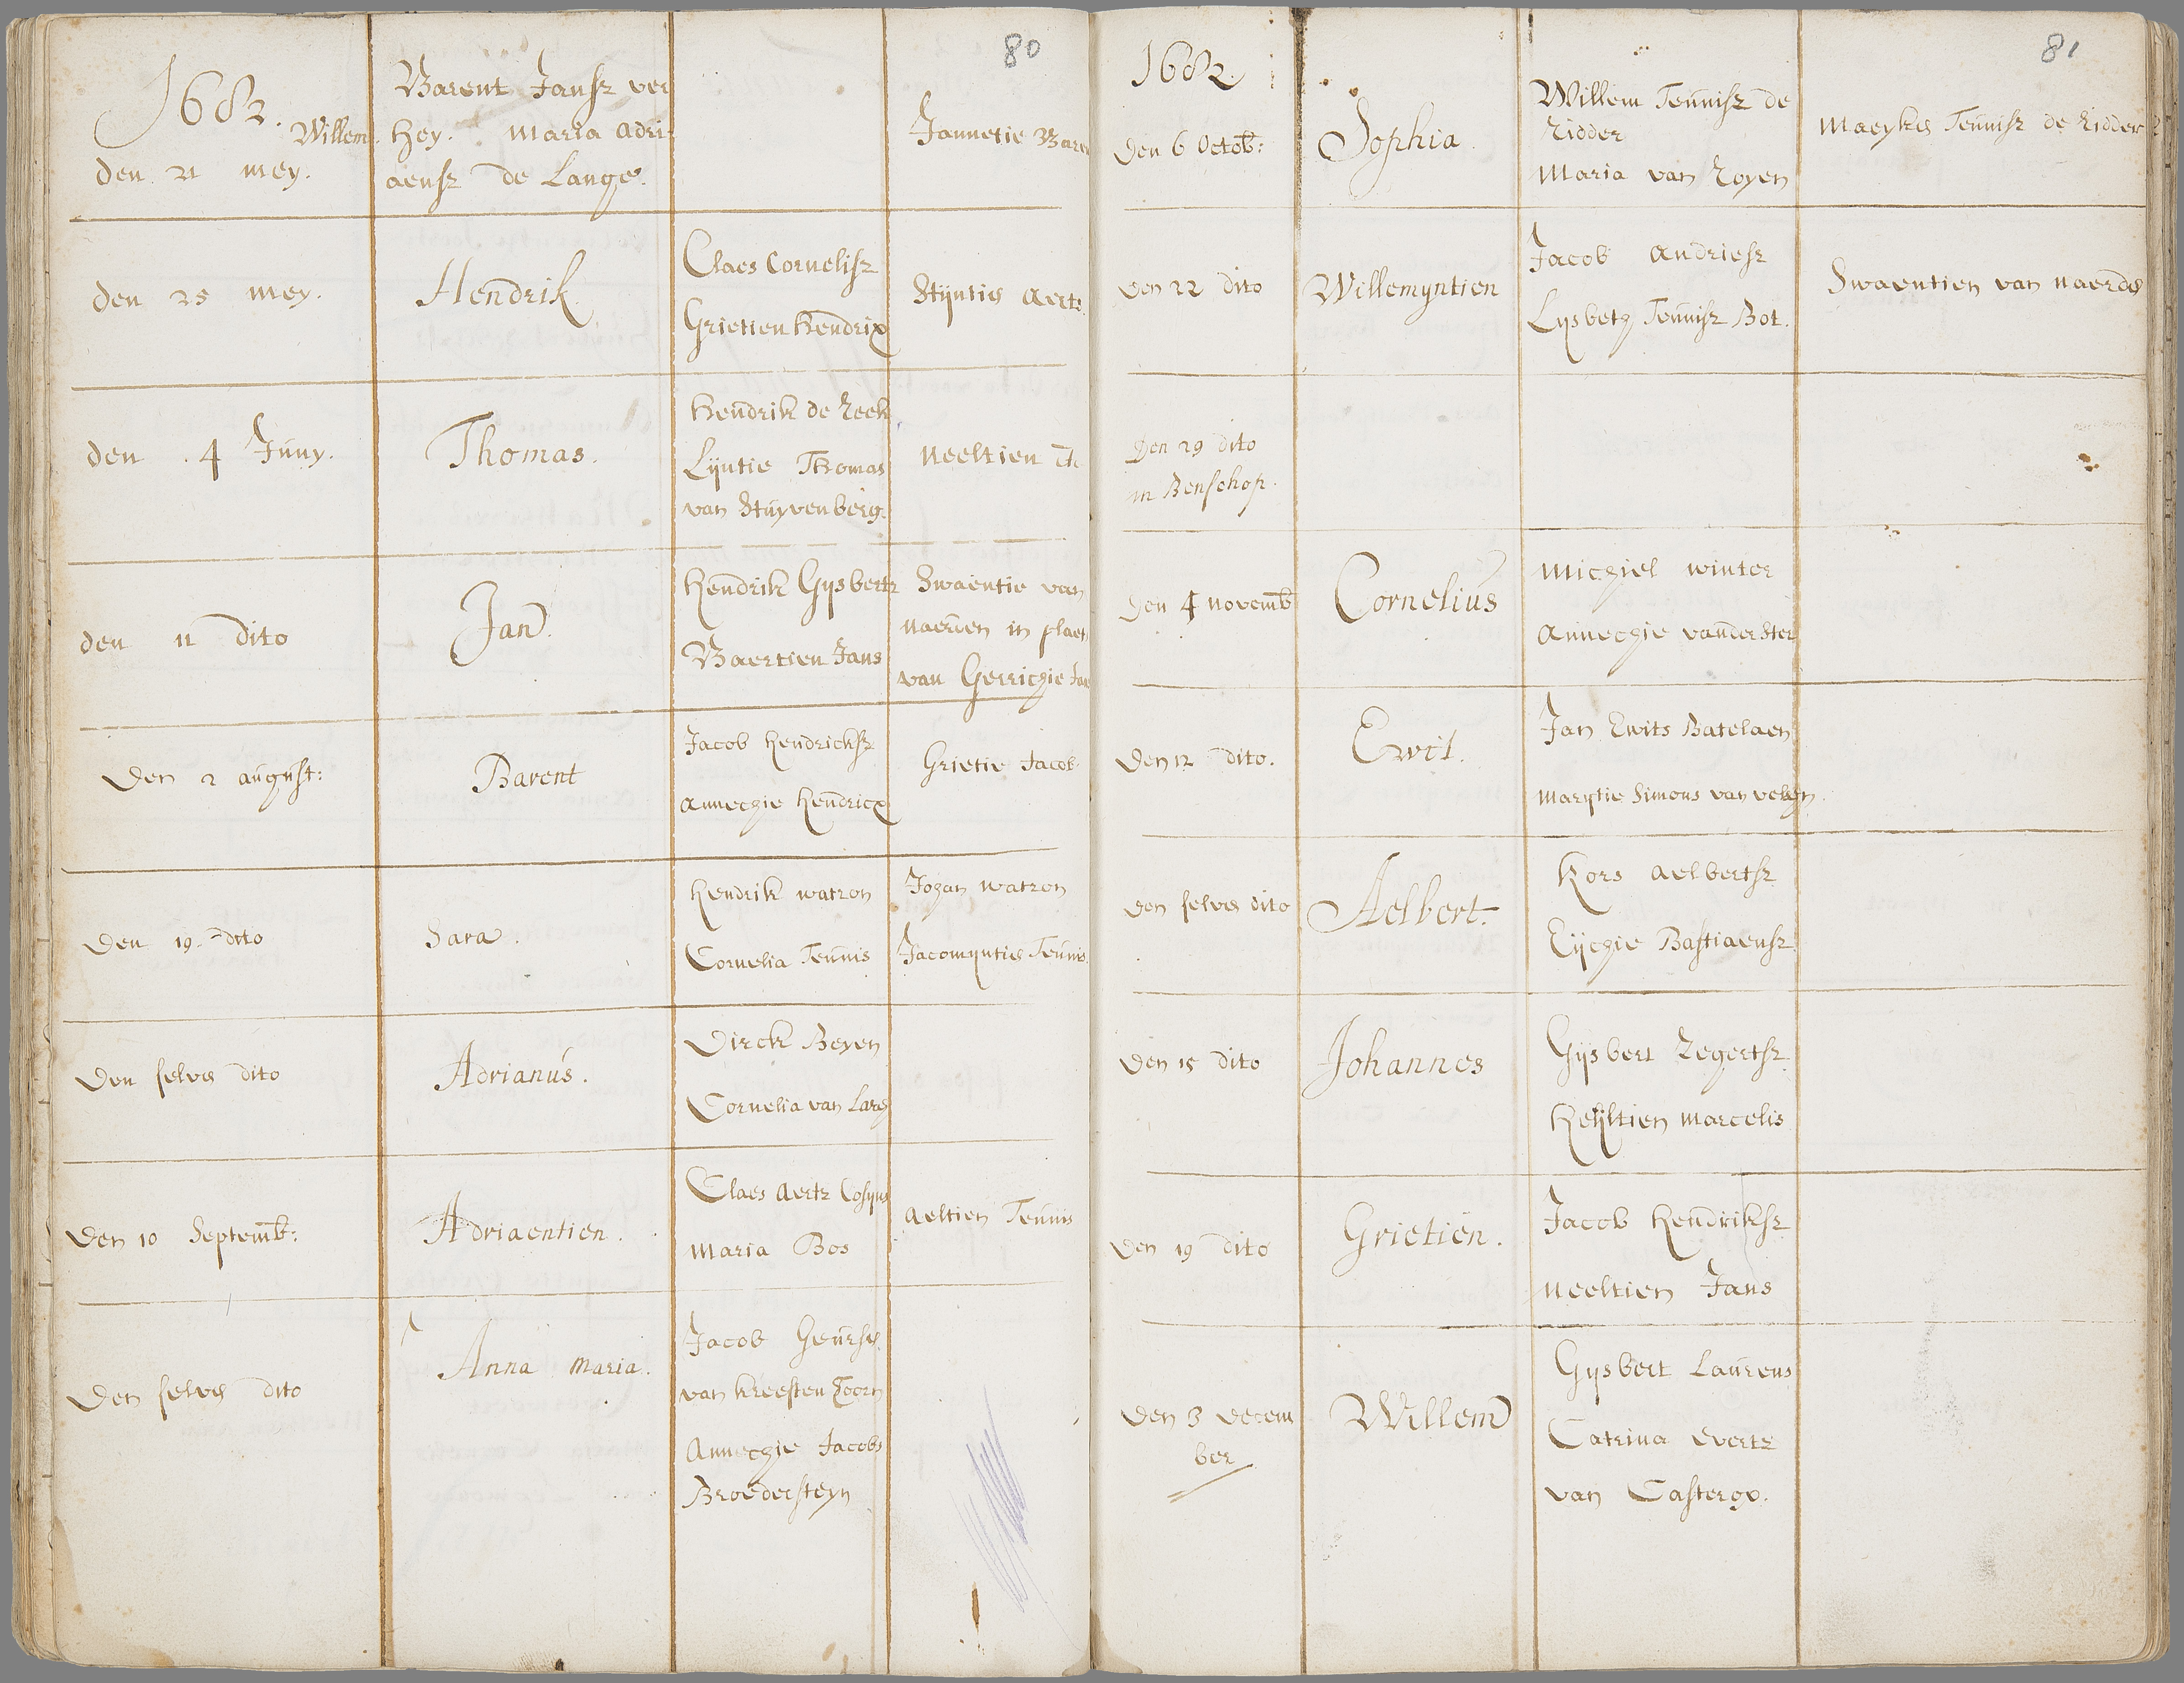 80
1682.
Willem.
Barent Jansz ver
hey. Maria Adri-
aensz de Lange.
Jannetie Baren
den 21 mey.
den 25 mey.
Hendrik
Claes Cornelisz
Grietien Hendrix
Stijntie Aerts
den . 4 Juny.
Thomas.
Hendrik de Reek
Lijntie Thomas
van Stuyvenberg.
Neeltien
den 11 dito
Jan.
Hendrik Gysbertz
Baertien Jans
Swaentie van
naerden in plaets
van Gerrichie Jan
Den 2 august:
Barent
Jacob Hendricksz
Annechie Hendricx
Grietie Jacob
Den 19. dito
Sara.
Hendrik watron
Cornelia Teunis
Johan watron
Jacomyntie Teunis.
Den selve dito
Adrianus.
Dirck Beyen
Cornelia van Lare
Den 10 Septemb:
Adriaentien.
Claes Aertz Cosyns
Maria Bos
Aeltien Teunis
Den selve dito
Anna Maria.
Jacob Geurse
van kreesten Toorn
Annechie Jacobs
Broedersteyn
81
1682.
Den 6 Octob:
Sophia.
Willem Teunisz de
Ridder
Maria van Royen
Maeyke Teunisz de Ridder
Den 22 dito
Willemyntien
Jacob Andriesz
Lysbeth Teunisz Bot.
Swaentien van Naerde
Den 29 dito
in Benschop.
Den 4 novemb
Cornelius
Michiel winter
Annechie vander Ster
Den 12 dito.
Ewit.
Jan Ewits Batelaen
Marytie Simons van velsen.
Den selve dito
Aelbert.
Kors Aelbertsz
Eijchie Bastiaensz.
Den 15 dito
Johannes
Gijsbert Regertsz.
Heyltien Marcelis
Den 19 dito
Grietien.
Jacob Hendriksz
Neeltien Jans
Den 3 Decem
ber
Willem
Gysbert Laurens
Catrina Evertz
van Castergo.